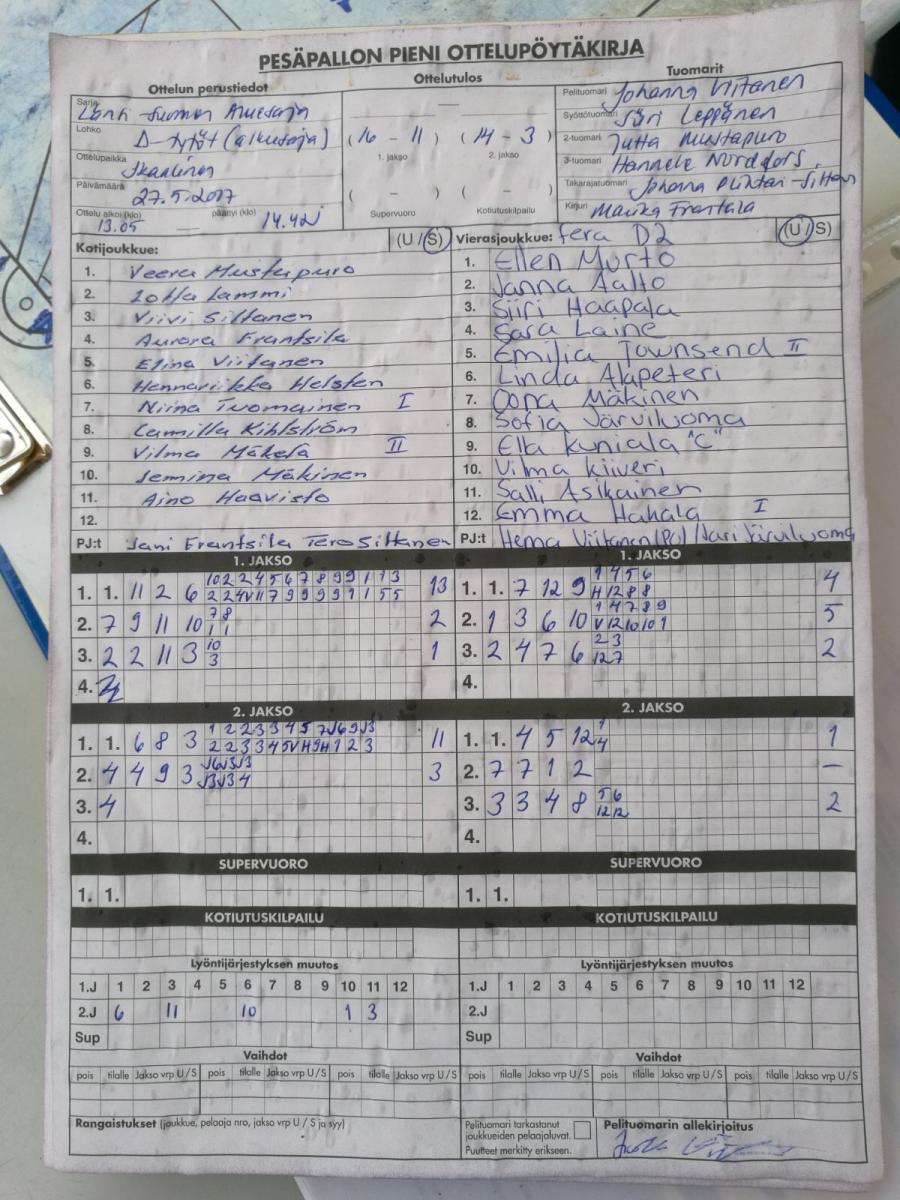 PESÄPALLON PIENI OTTELUPÖYTÄKIRJA
Ottelun perustiedot
Ottelutulos
Tuomarit
Sarja
Lohko
D-tytöt (alkusarja)
Ottelupaikka
Ikaalinen
Päivämäärä
27.5.2017
Ottelu alkoi (klo) 13.05 päättyi (klo) 14.42
(16 - 11) (14 - 3)
1. jakso 2. jakso
( - ) ( - )
Supervuoro Kotiutuskilpailu
Pelituomari Johanna Viitanen
Syöttötuomari Leppänen
2-tuomari Jutta Mustapuro
3-tuomari Hannele Nordfors
Takarajatuomari Johanna
Kirjuri Marika Frantsila
Kotijoukkue: (U / S)
1. Veera Mustapuro
2. Lotta Lammi
3. Viivi Siltanen
4. Aurora Frantsila
5. Elina Viitanen
6. Hennariikka Helsten
7. Niina Tuomainen I
8. Camilla Kihlström
9. Vilma Mäkelä II
10. Jemina Mäkinen
11. Aino Haavisto
12.
PJ:t Jani Frantsila Tero Siltanen
Vierasjoukkue: Fera D2 (U / S)
1. Ellen Murto
2. Janna Aalto
3. Siiri Haapala
4. Sara Laine
5. Emilia Townsend II
6. Linda Alapeteri
7. Oona Mäkinen
8. Sofia Järviluoma
9. Ella Kuniala "C"
10. Vilma Kiiveri
11. Salli Asikainen
12. Emma Hakala I
PJ:t Viitanen (PJ) / Jari Järviluoma
1. JAKSO
1. 1. 11 2 6 13
10 2 2 4 5 6 7 8 9 9 1 1 3
2. 7 9 11 10 2
7 8
1 1
3. 2 2 11 3 1
10
3
4.
1. JAKSO
1. 1. 7 12 9 4
1 4 5 6
H 12 8 8
2. 1 3 6 10 5
1 4 7 8 9
V 12 10 10 9
3. 2 4 7 6 2
2 3
12 7
4.
2. JAKSO
1. 1. 6 8 3 11
2. 4 4 9 3 3
3. 4
4.
2. JAKSO
1. 1. 4 5 12 1
1
4
2. 7 7 1 2 –
3. 3 3 4 8 2
5 6
12 12
4.
SUPERVUORO
1. 1.
SUPERVUORO
1. 1.
KOTIUTUSKILPAILU
KOTIUTUSKILPAILU
Lyöntijärjestyksen muutos
1.J 1 2 3 4 5 6 7 8 9 10 11 12
2.J 6 11 10 1 3
Sup
Lyöntijärjestyksen muutos
1.J 1 2 3 4 5 6 7 8 9 10 11 12
2.J
Sup
Vaihdot
pois tilalle Jakso vrp U / S pois tilalle Jakso vrp U / S pois tilalle Jakso vrp U / S
Vaihdot
pois tilalle Jakso vrp U / S pois tilalle Jakso vrp U / S pois tilalle Jakso vrp U / S
Rangaistukset (joukkue, pelaaja nro, jakso vrp U / S ja syy)
Pelituomari tarkastanut
joukkueiden pelaajaluvat.
Puutteet merkitty erikseen.
Pelituomarin allekirjoitus